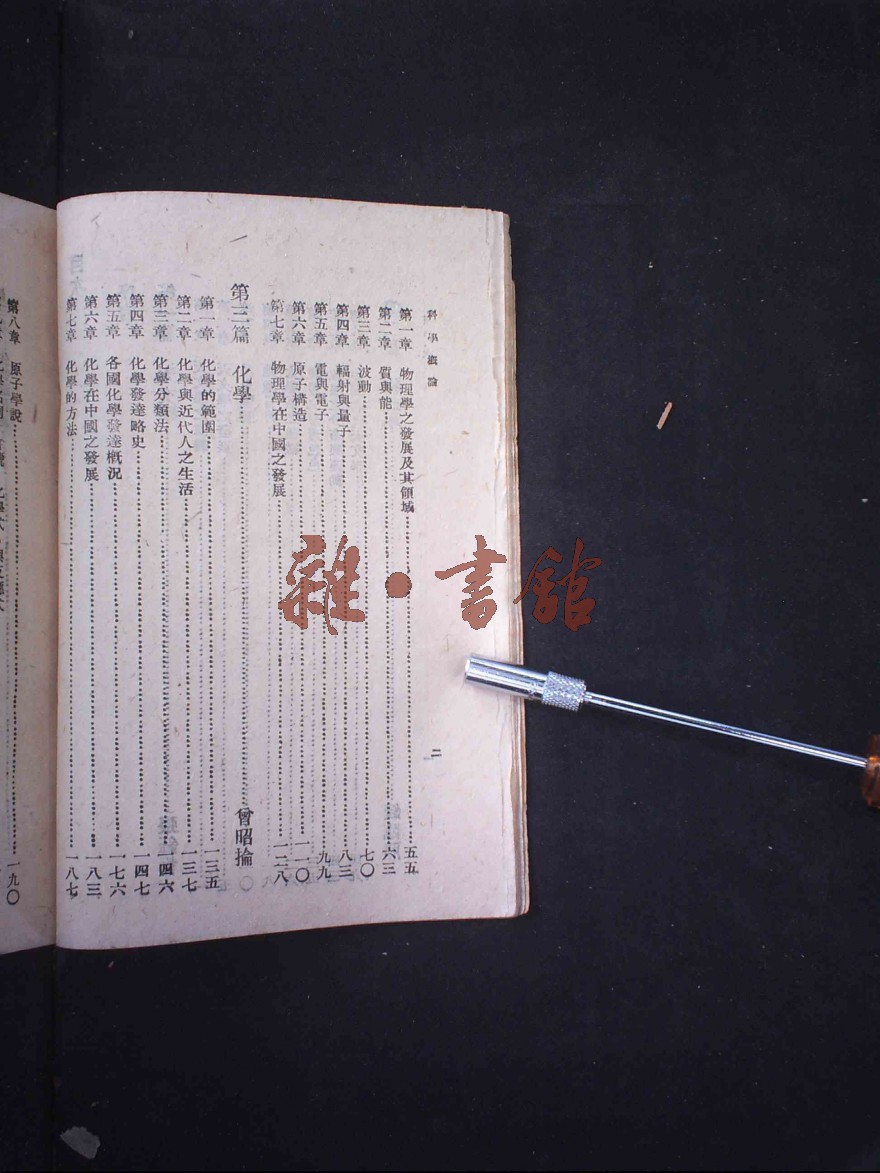 科學概論
二
第一章 物理學之發展及其領域……五五
第二章 質與能……六三
第三章 波動……七〇
第四章 輻射與量子……八三
第五章 電與電子……九九
第六章 原子構造……一一〇
第七章 物理學在中國之發展……一二八
第三篇 化學……曾昭掄
第一章 化學的範圍……一三五
第二章 化學與近代人之生活……一三七
第三章 化學分類法……一四六
第四章 化學發達略史……一四七
第五章 各國化學發達概況……一七六
第六章 化學在中國之發展……一八三
第七章 化學的方法……一八七
第八章 原子學說……一九〇
雜·書館